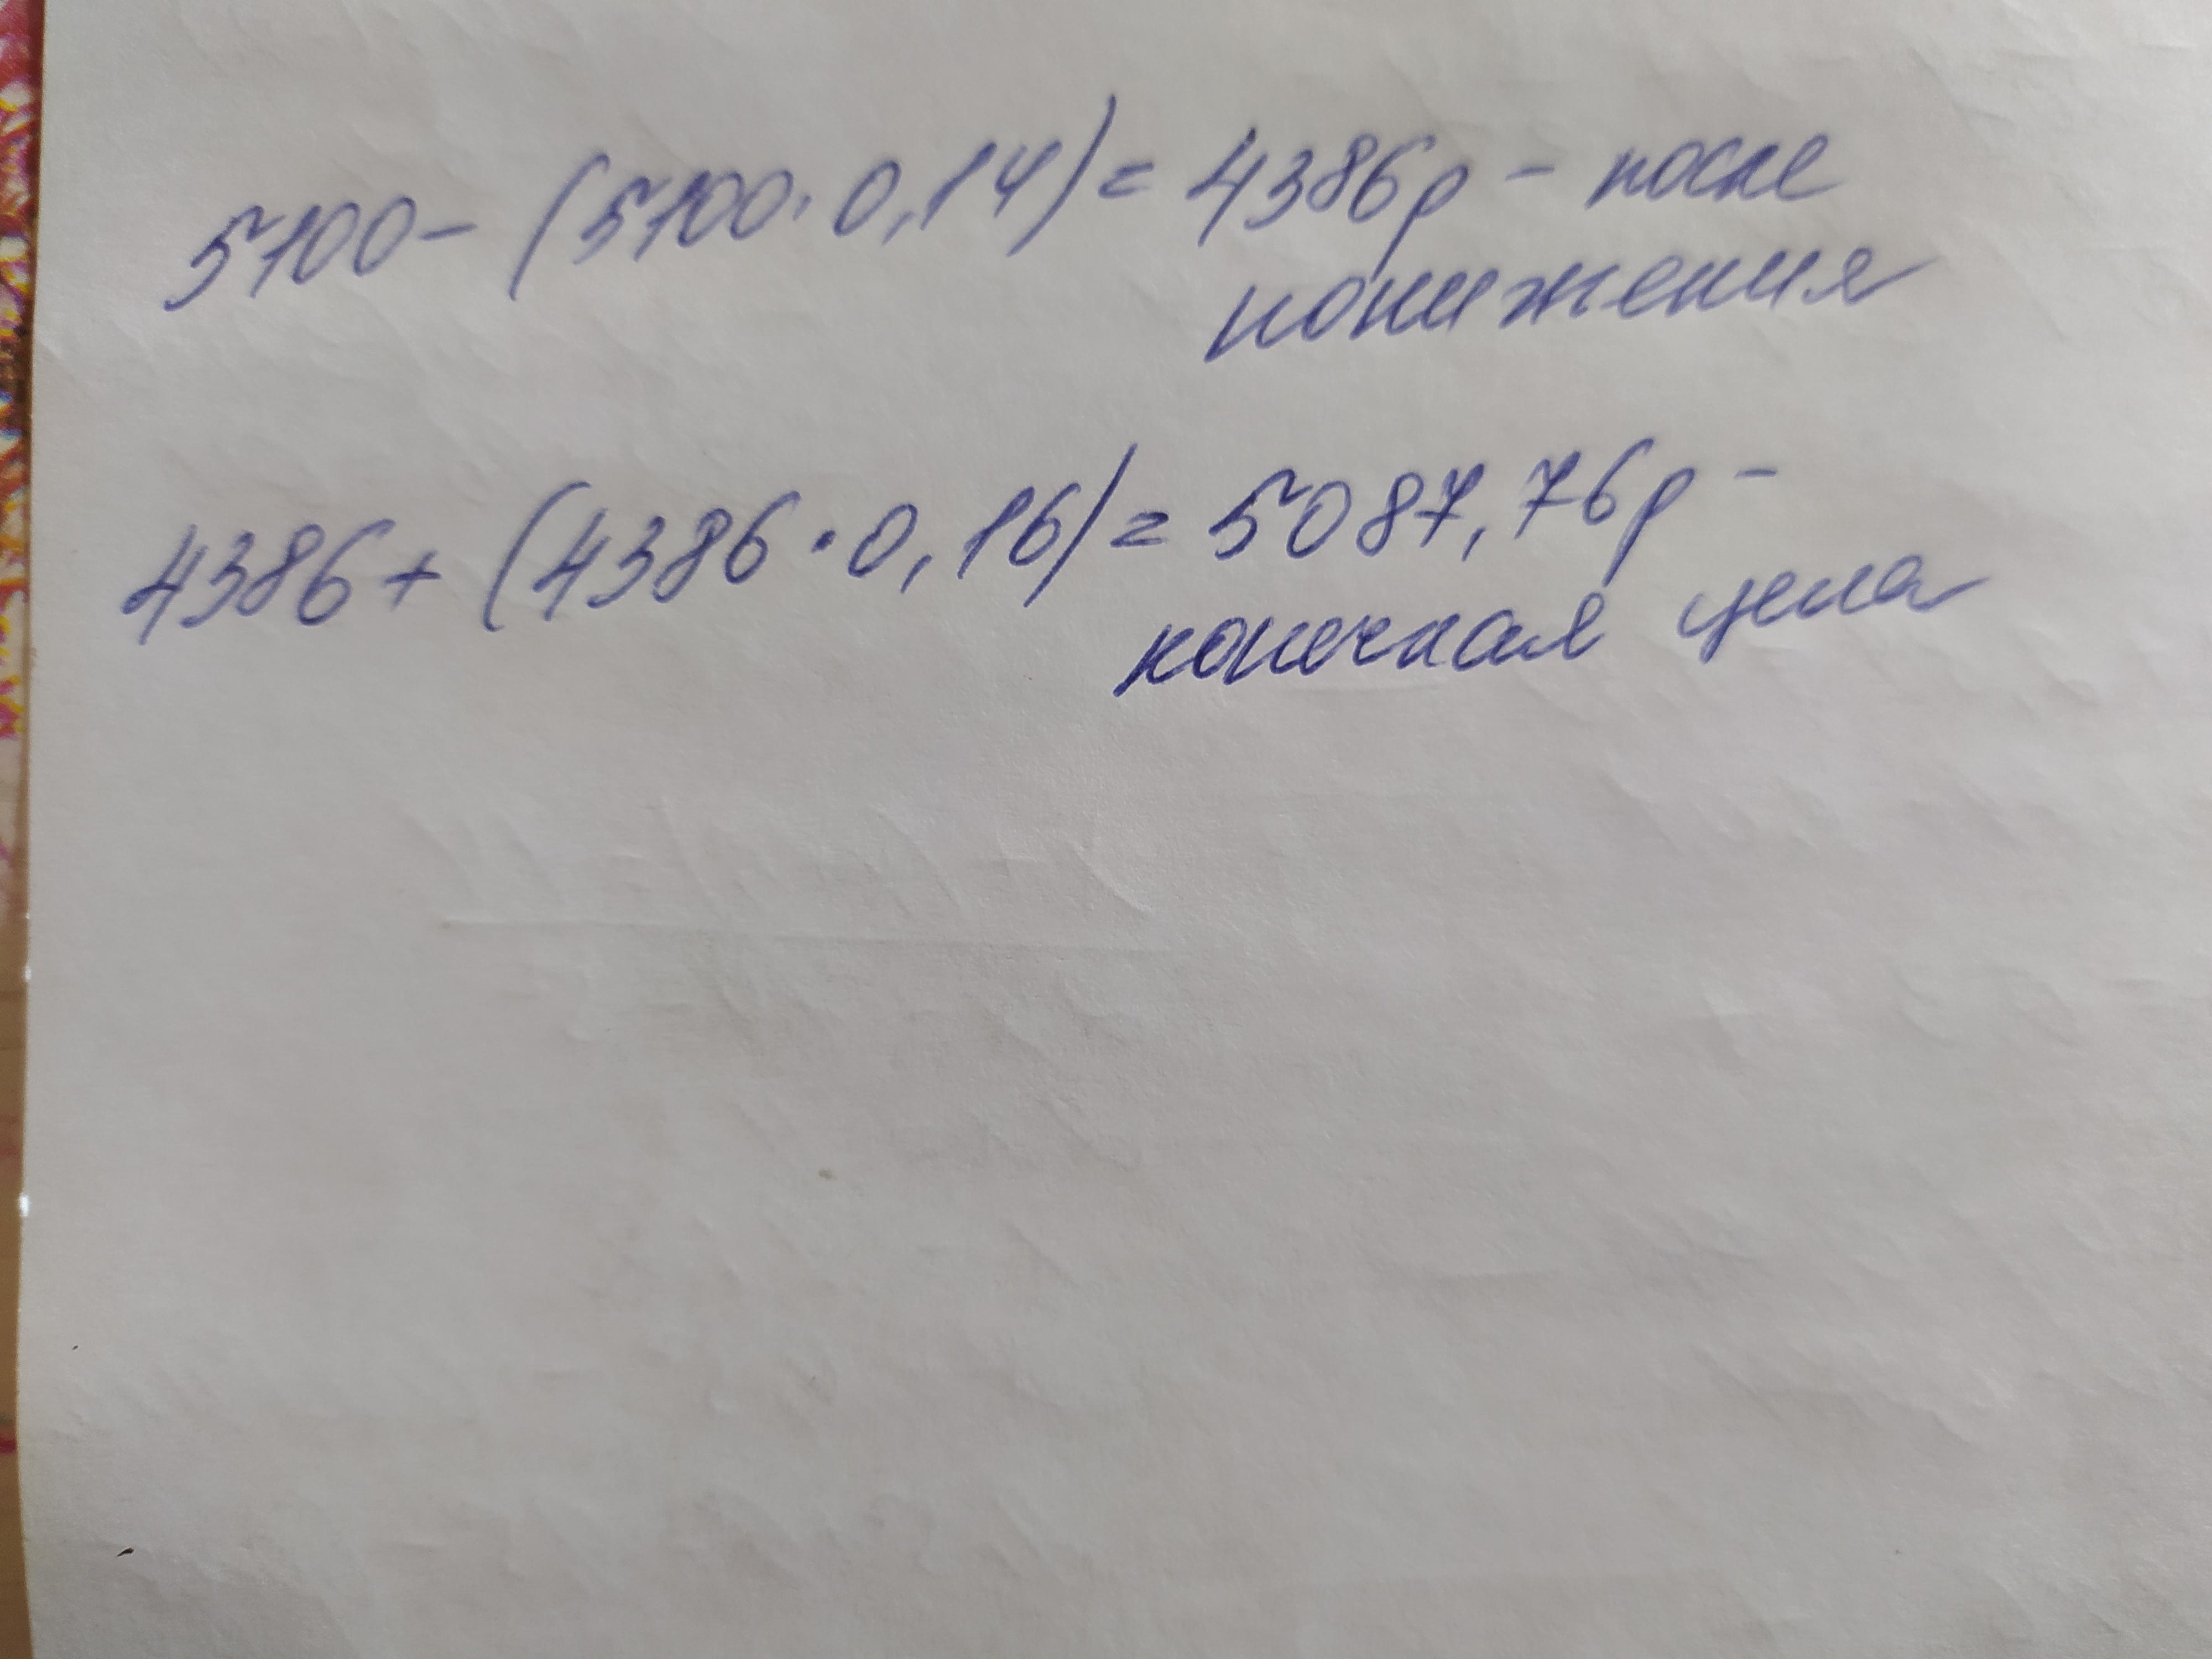 5100 - (5100 · 0,14) = 4386р - после
понижения
4386 + (4386 · 0,16) = 5087,76р -
конечная цена